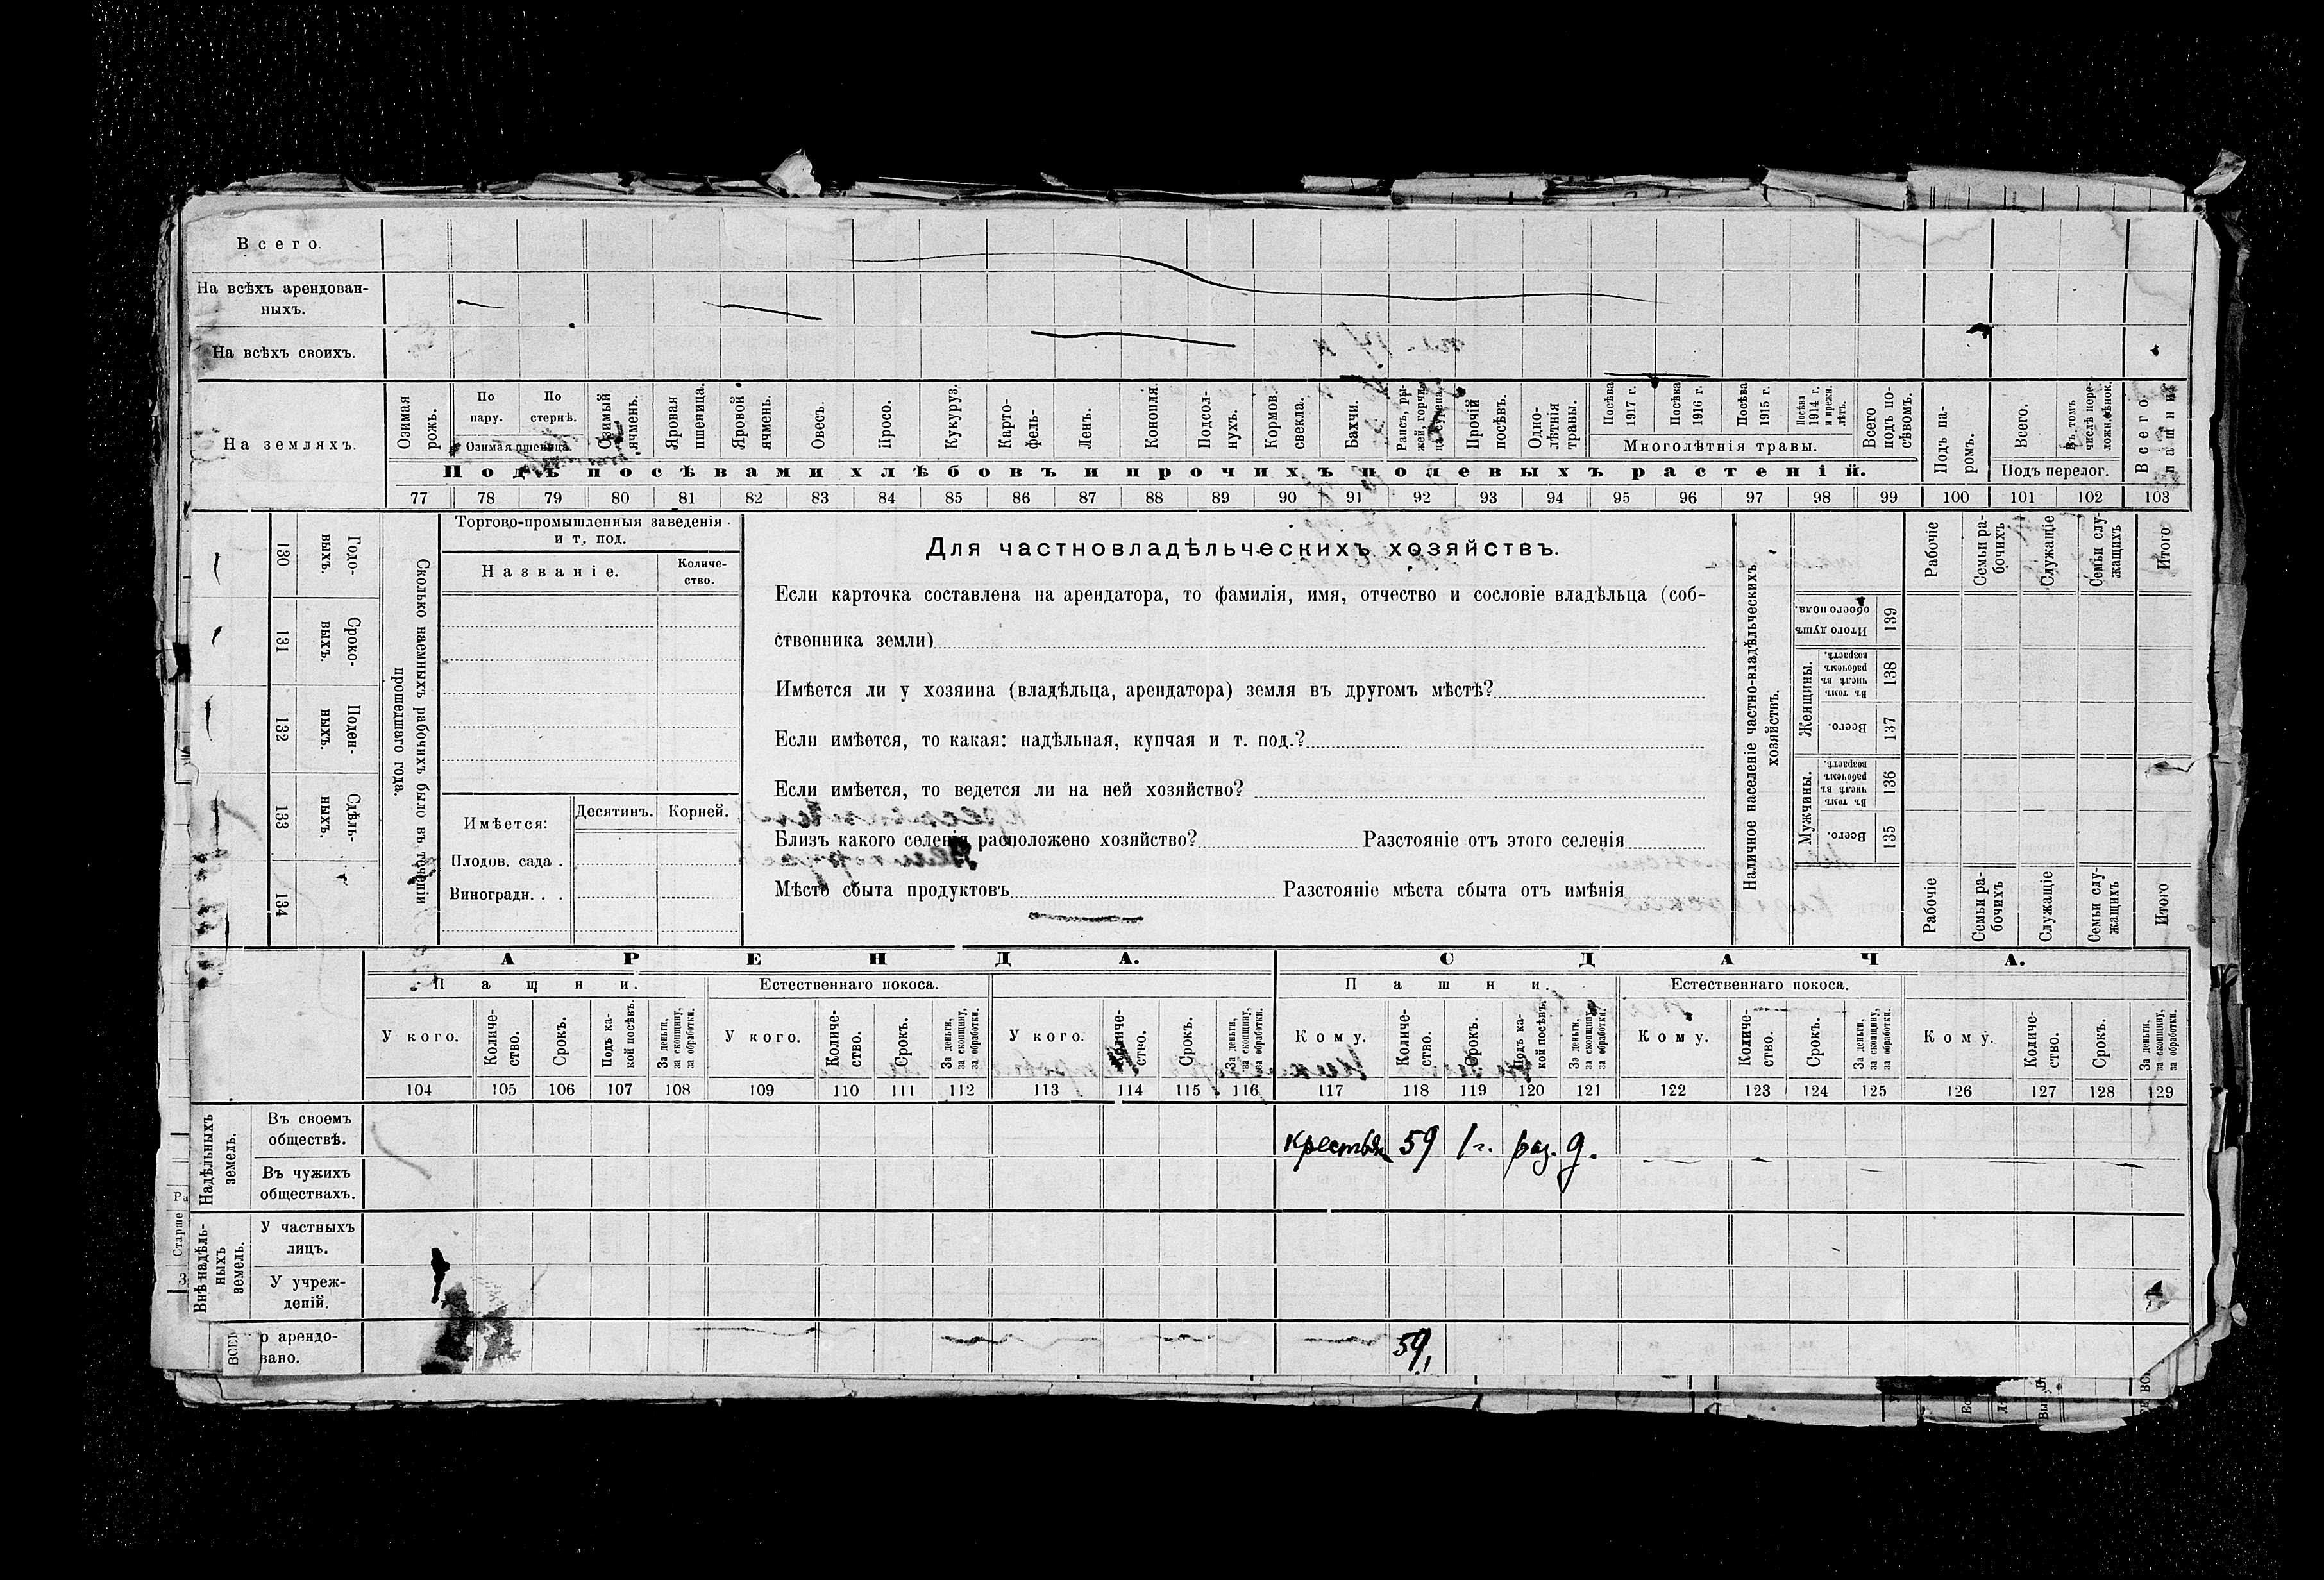 Всего.
На всѣхъ арендован-
ныхъ.
На всѣхъ своихъ.
На земляхъ.
Озимая
рожь.
По
пару.
По
стернѣ.
Озимая пшеница.
Озимый
ячмень.
Яровая
пшеница.
Яровой
ячмень.
Овесъ.
Просо.
Кукуруз.
Карто-
фель-
Ленъ.
Конопля.
Подсол-
нухъ.
Кормов.
свекла.
Бахчи.
Рапсъ, ры-
жей, горчи-
ца, сурепа.
Прочій
посѣвъ.
Одно-
лѣтнія
травы.
Посѣва
1917 г.
Посѣва
1916 г.
Посѣва
1915 г.
Посѣва
1914 г.
и прежн.
лѣтъ.
Многолѣтнія травы.
Всего
подъ по-
сѣвомъ.
Подъ па-
ромъ.
Всего.
Въ томъ
числѣ пере-
ложн. сѣнок.
Подъ перелог.
Всего
пашни
Подъ посѣвами хлѣбовъ и прочихъ полевыхъ растеній.
77 78 79 80 81 82 83 84 85 86 87 88 89 90 91 92 93 94 95 96 97 98 99 100 101 102 103
130
Годо-
выхъ.
131
Сроко-
выхъ.
132
Поден-
ныхъ.
133
Сдѣль-
ныхъ.
134
Сколько наемныхъ рабочихъ было въ теченіи
прошедшаго года.
Торгово-промышленныя заведенія
и т. под.
Названіе.
Количе-
ство.
Имѣется:
Десятинъ.
Корней.
Плодов. сада .
Виноградн. . .
Для частновладѣльческихъ хозяйствъ.
Если карточка составлена на арендатора, то фамилія, имя, отчество и сословіе владѣльца (соб-
ственника земли)
Имѣется ли у хозяина (владѣльца, арендатора) земля въ другомъ мѣстѣ?
Если имѣется, то какая: надѣльная, купчая и т. под.?
Если имѣется, то ведется ли на ней хозяйство?
Близъ какого селенія расположено хозяйство? Разстояніе отъ этого селенія
Мѣсто сбыта продуктовъ Разстояніе мѣста сбыта отъ имѣнія
Наличное населеніе частно-владѣльческихъ
хозяйствъ.
Рабочіе
Семьи ра-
бочихъ
Служащіе
Семьи слу-
жащихъ
Итого
Итого душъ
обоего пола.
139
Женщины.
Въ томъ
числѣ въ
рабочемъ
возрастѣ.
138
Всего.
137
Мужчины.
Въ томъ
числѣ въ
рабочемъ
возрастѣ.
136
Всего.
135
Рабочіе
Семьи ра-
бочихъ
Служащіе
Семьи слу-
жащихъ
Итого
АРЕНДА.
СДАЧА.
Пашни.
Естественнаго покоса.
Пашни.
Естественнаго покоса.
У кого.
Количе-
ство.
Срокъ.
Подъ ка-
кой посѣвъ.
За деньги,
за скопщину,
за обработки.
У кого.
Количе-
ство.
Срокъ.
За деньги,
за скопщину,
за обработки.
У кого.
Количе-
ство.
Срокъ.
За деньги,
за скопщину,
за обработки.
Кому.
Количе-
ство.
Срокъ.
Подъ ка-
кой посѣвъ.
За деньги,
за скопщину,
за обработки.
Кому.
Количе-
ство.
Срокъ.
За деньги,
за скопщину,
за обработки.
Кому.
Количе-
ство.
Срокъ.
За деньги,
за скопщину,
за обработки.
104 105 106 107 108 109 110 111 112 113 114 115 116 117 118 119 120 121 122 123 124 125 126 127 128 129
Надѣльныхъ
земель.
Въ своемъ
обществѣ.
Крестьян 59 1 г. раз. д.
Въ чужихъ
обществахъ.
Внѣ надѣль-
ныхъ
земель.
У частныхъ
лицъ.
У учреж-
деній.
Старше
ВСЕГ
о арендо-
вано.
59,